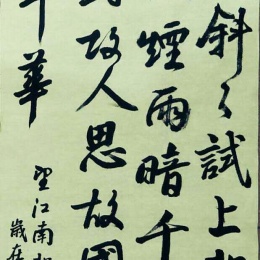 斜〻試上
煙雨暗千
故人思故國
年華
望江南
歲在